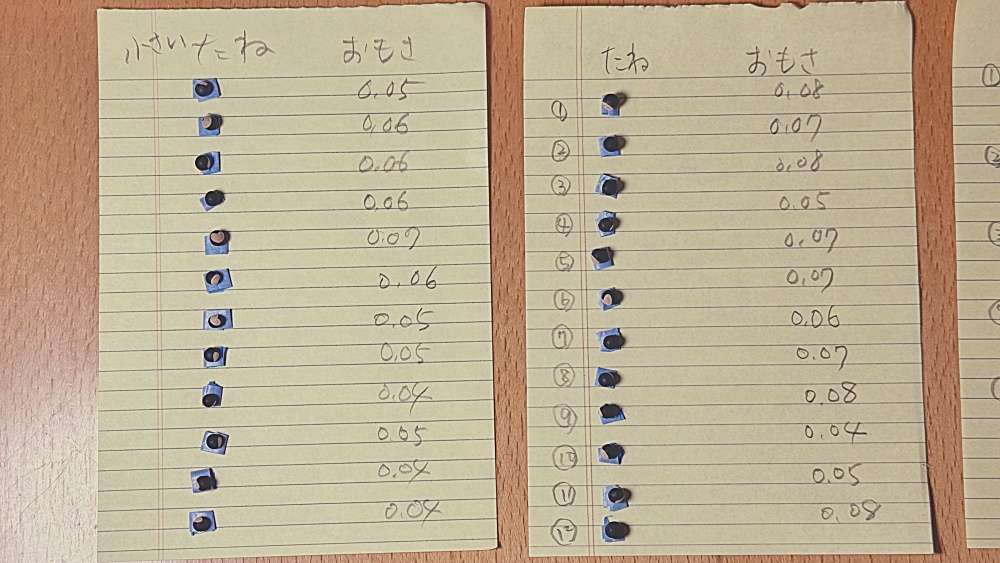 小さいたね おもさ
0.05
0.06
0.06
0.06
0.07
0.06
0.05
0.05
0.04
0.05
0.04
0.04
たね おもさ
① 0.08
② 0.07
③ 0.08
④ 0.05
⑤ 0.07
⑥ 0.07
⑦ 0.06
⑧ 0.07
⑨ 0.08
⑩ 0.04
⑪ 0.05
⑫ 0.08
①
②
③